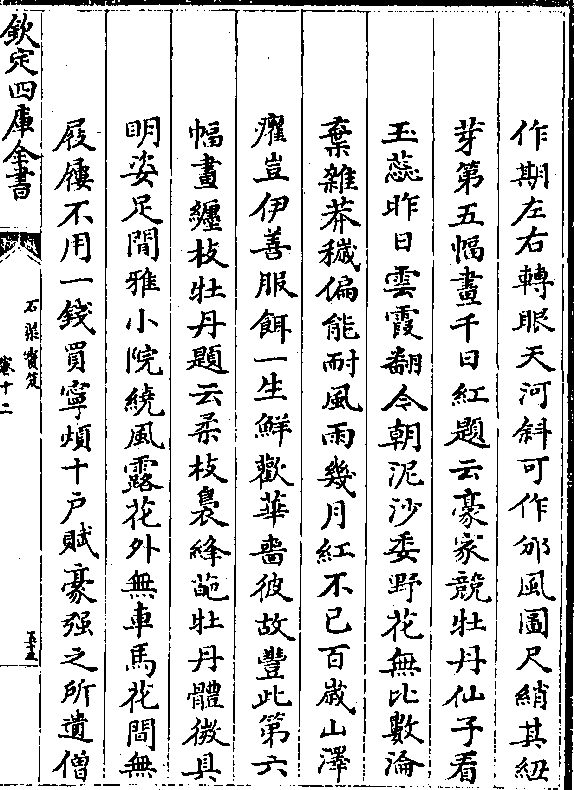 作期左右轉眼天河斜可作邠風圖尺綃其紐
芽第五幅畫千日紅題云豪家競牡丹仙子看
玉蕊昨日雲霞翻今朝泥沙委野花無比數淪
棄雜莽穢偏能耐風雨幾月紅不已百歲山澤
癯豈伊善服餌一生鮮歡華嗇彼故豐此第六
幅畫纏枝牡丹題云柔枝裊絳葩牡丹體微具
明姿足閒雅小院繞風露花外無車馬花間無
屐𡳐不用一錢買寧煩十戶賦豪强之所遺僧
欽定四庫全書
石渠寶笈
卷十二